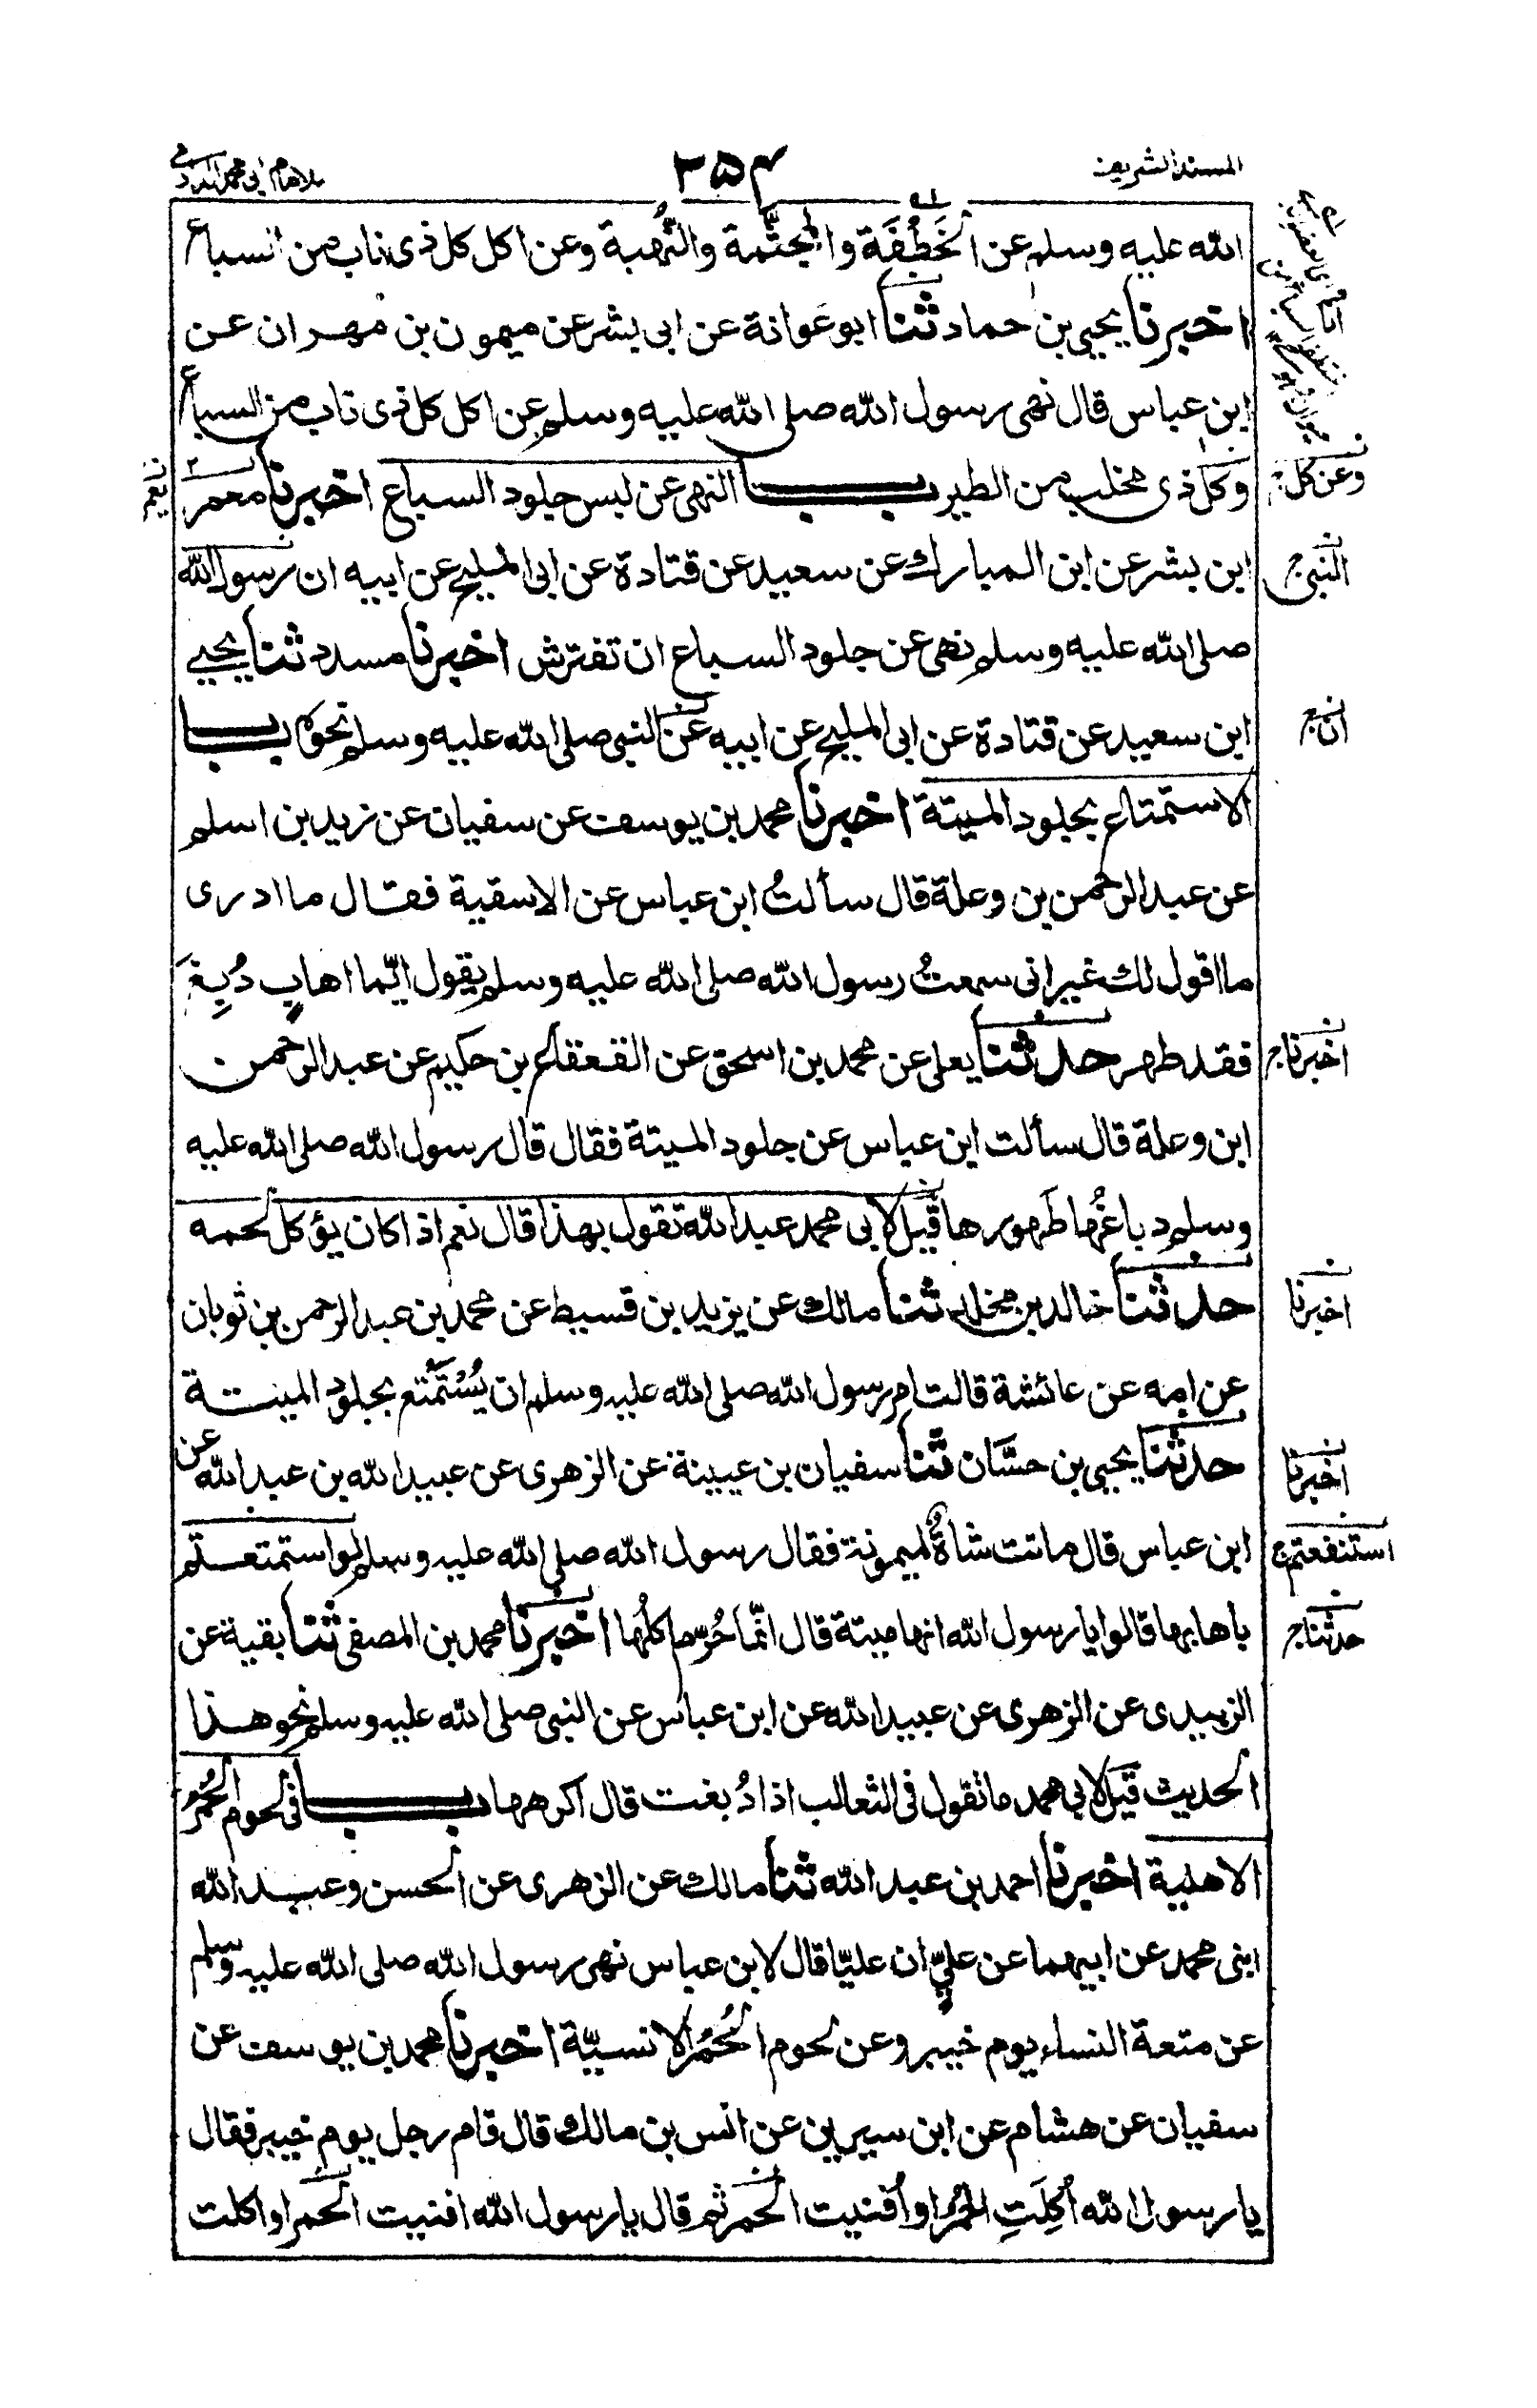 المسند الشريف
٢٥٤
للامام ابى محمد الدارمى
الله عليه وسلم عن الخَطْفَة والمجثَّمة والنُّهبة وعن اكل كل ذى ناب من السباع
اخبرنا يحيى بن حماد ثنا ابو عوانة عن ابى بشر عن ميمون بن مهران عن
ابن عباس قال نهى رسول الله صلى الله عليه وسلم عن اكل كل ذى ناب من السباع
وكل ذى مخلب من الطير باب النهى عن لبس جلود السباع اخبرنا معمر
وعن كل
نعيم
ابن بشر عن ابن المبارك عن سعيد عن قتادة عن ابى المليح عن ابيه ان رسول الله
النبى
صلى الله عليه وسلم نهى عن جلود السباع ان تفترش اخبرنا مسدد ثنا يحيى
ابن سعيد عن قتادة عن ابى المليح عن ابيه عن النبى صلى الله عليه وسلم نحوه باب
ان
الاستمتاع بجلود الميتة اخبرنا محمد بن يوسف عن سفيان عن زيد بن اسلم
عن عبد الرحمن بن وعلة قال سألتُ ابن عباس عن الاسقية فقال ما ادرى
ما اقول لك غير انى سمعتُ رسول الله صلى الله عليه وسلم يقول ايّما اهابٍ دُبِغَ
فقد طهر حدثنا يعلى عن محمد بن اسحق عن القعقاع بن حكيم عن عبد الرحمن
اخبرنا
ابن وعلة قال سألت ابن عباس عن جلود الميتة فقال قال رسول الله صلى الله عليه
وسلم دباغُها طَهورها قيل لابى محمد عبد الله تقول بهذا قال نعم اذا كان يؤكل لحمه
حدثنا خالد بن مخلد ثنا مالك عن يزيد بن قسيط عن محمد بن عبد الرحمن بن ثوبان
اخبرنا
عن امه عن عائشة قالت امر رسول الله صلى الله عليه وسلم ان يُسْتَمْتَع بجلود الميتة
حدثنا يحيى بن حسَّان ثنا سفيان بن عيينة عن الزهرى عن عبيد الله بن عبد الله عن
اخبرنا
ابن عباس قال ماتت شاةٌ لميمونة فقال رسول الله صلى الله عليه وسلم لو استمتعتم
استنفعتم
باهابها قالوا يا رسول الله انها ميتة قال انّما حُرّم اكلُها اخبرنا محمد بن المصفى ثنا بقية عن
حدثنا
الزبيدى عن الزهرى عن عبيد الله عن ابن عباس عن النبى صلى الله عليه وسلم نحو هذا
الحديث قيل لابى محمد ما تقول فى الثعالب اذا دُبغت قال اكرهها باب فى لحوم الحُمُر
الاهلية اخبرنا احمد بن عبد الله ثنا مالك عن الزهرى عن الحسن وعبد الله
ابنى محمد عن ابيهما عن علىٍّ ان عليّا قال لابن عباس نهى رسول الله صلى الله عليه وسلم
عن متعة النساء يوم خيبر وعن لحوم الحُمُر الانسيّة اخبرنا محمد بن يوسف عن
سفيان عن هشام عن ابن سيرين عن انس بن مالك قال قام رجل يوم خيبر فقال
يا رسول الله اُكِلَتِ الحُمُر او اُفنيت الحمر ثم قال يا رسول الله افنيت الحمر او اكلت